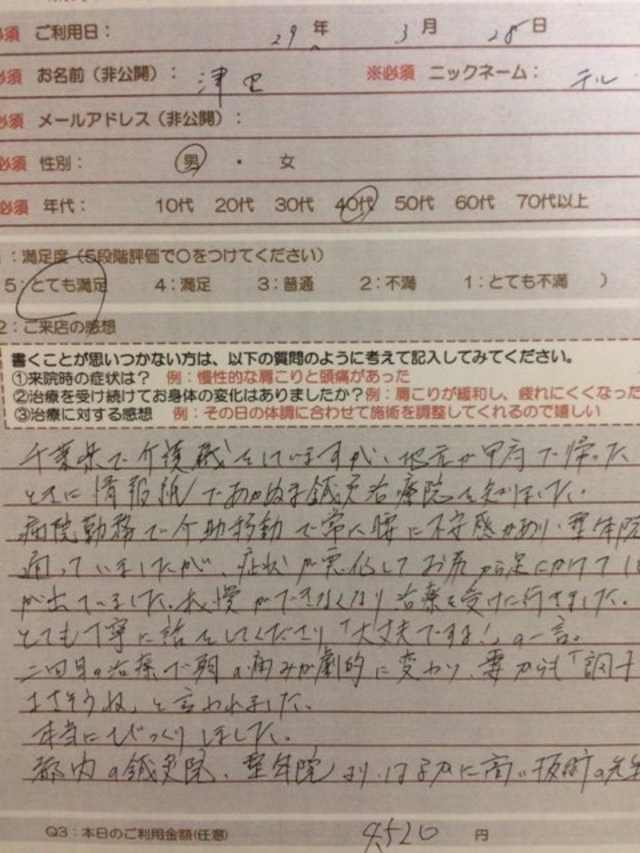 必須 ご利用日： 29 年 3 月 28 日
必須 お名前（非公開）： 津田 ※必須 ニックネーム： テル
必須 メールアドレス（非公開）：
必須 性別： 男 ・ 女
必須 年代： 10代 20代 30代 40代 50代 60代 70代以上
：満足度（5段階評価で○をつけてください）
5：とても満足 4：満足 3：普通 2：不満 1：とても不満 ）
2：ご来店の感想
書くことが思いつかない方は、以下の質問のように考えて記入してみてください。
①来院時の症状は？ 例：慢性的な肩こりと頭痛があった
②治療を受け続けてお身体の変化はありましたか？例：肩こりが緩和し、疲れにくくなった
③治療に対する感想 例：その日の体調に合わせて施術を調整してくれるので嬉しい
千葉県で介護職をしていますが、地元が甲府で帰った
ときに情報紙であかぬま鍼灸治療院を知りました。
病院勤務で介助移動で常人腰に不安感があり、整体院
通っていましたが、症状が悪化してお尻から足にかけてし
が出ていました。我慢ができなくなり治療を受けに行きました。
とても丁寧に話をしてくださり「大丈夫ですよ！」の一言。
二回目の治療で朝の痛みが劇的に変わり、妻からも「調子
よさそうね」と言われました。
本当にびっくりしました。
都内の鍼灸院、整体院より、はるかに高い技術の先生
Q3：本日のご利用金額(任意) 4,520 円